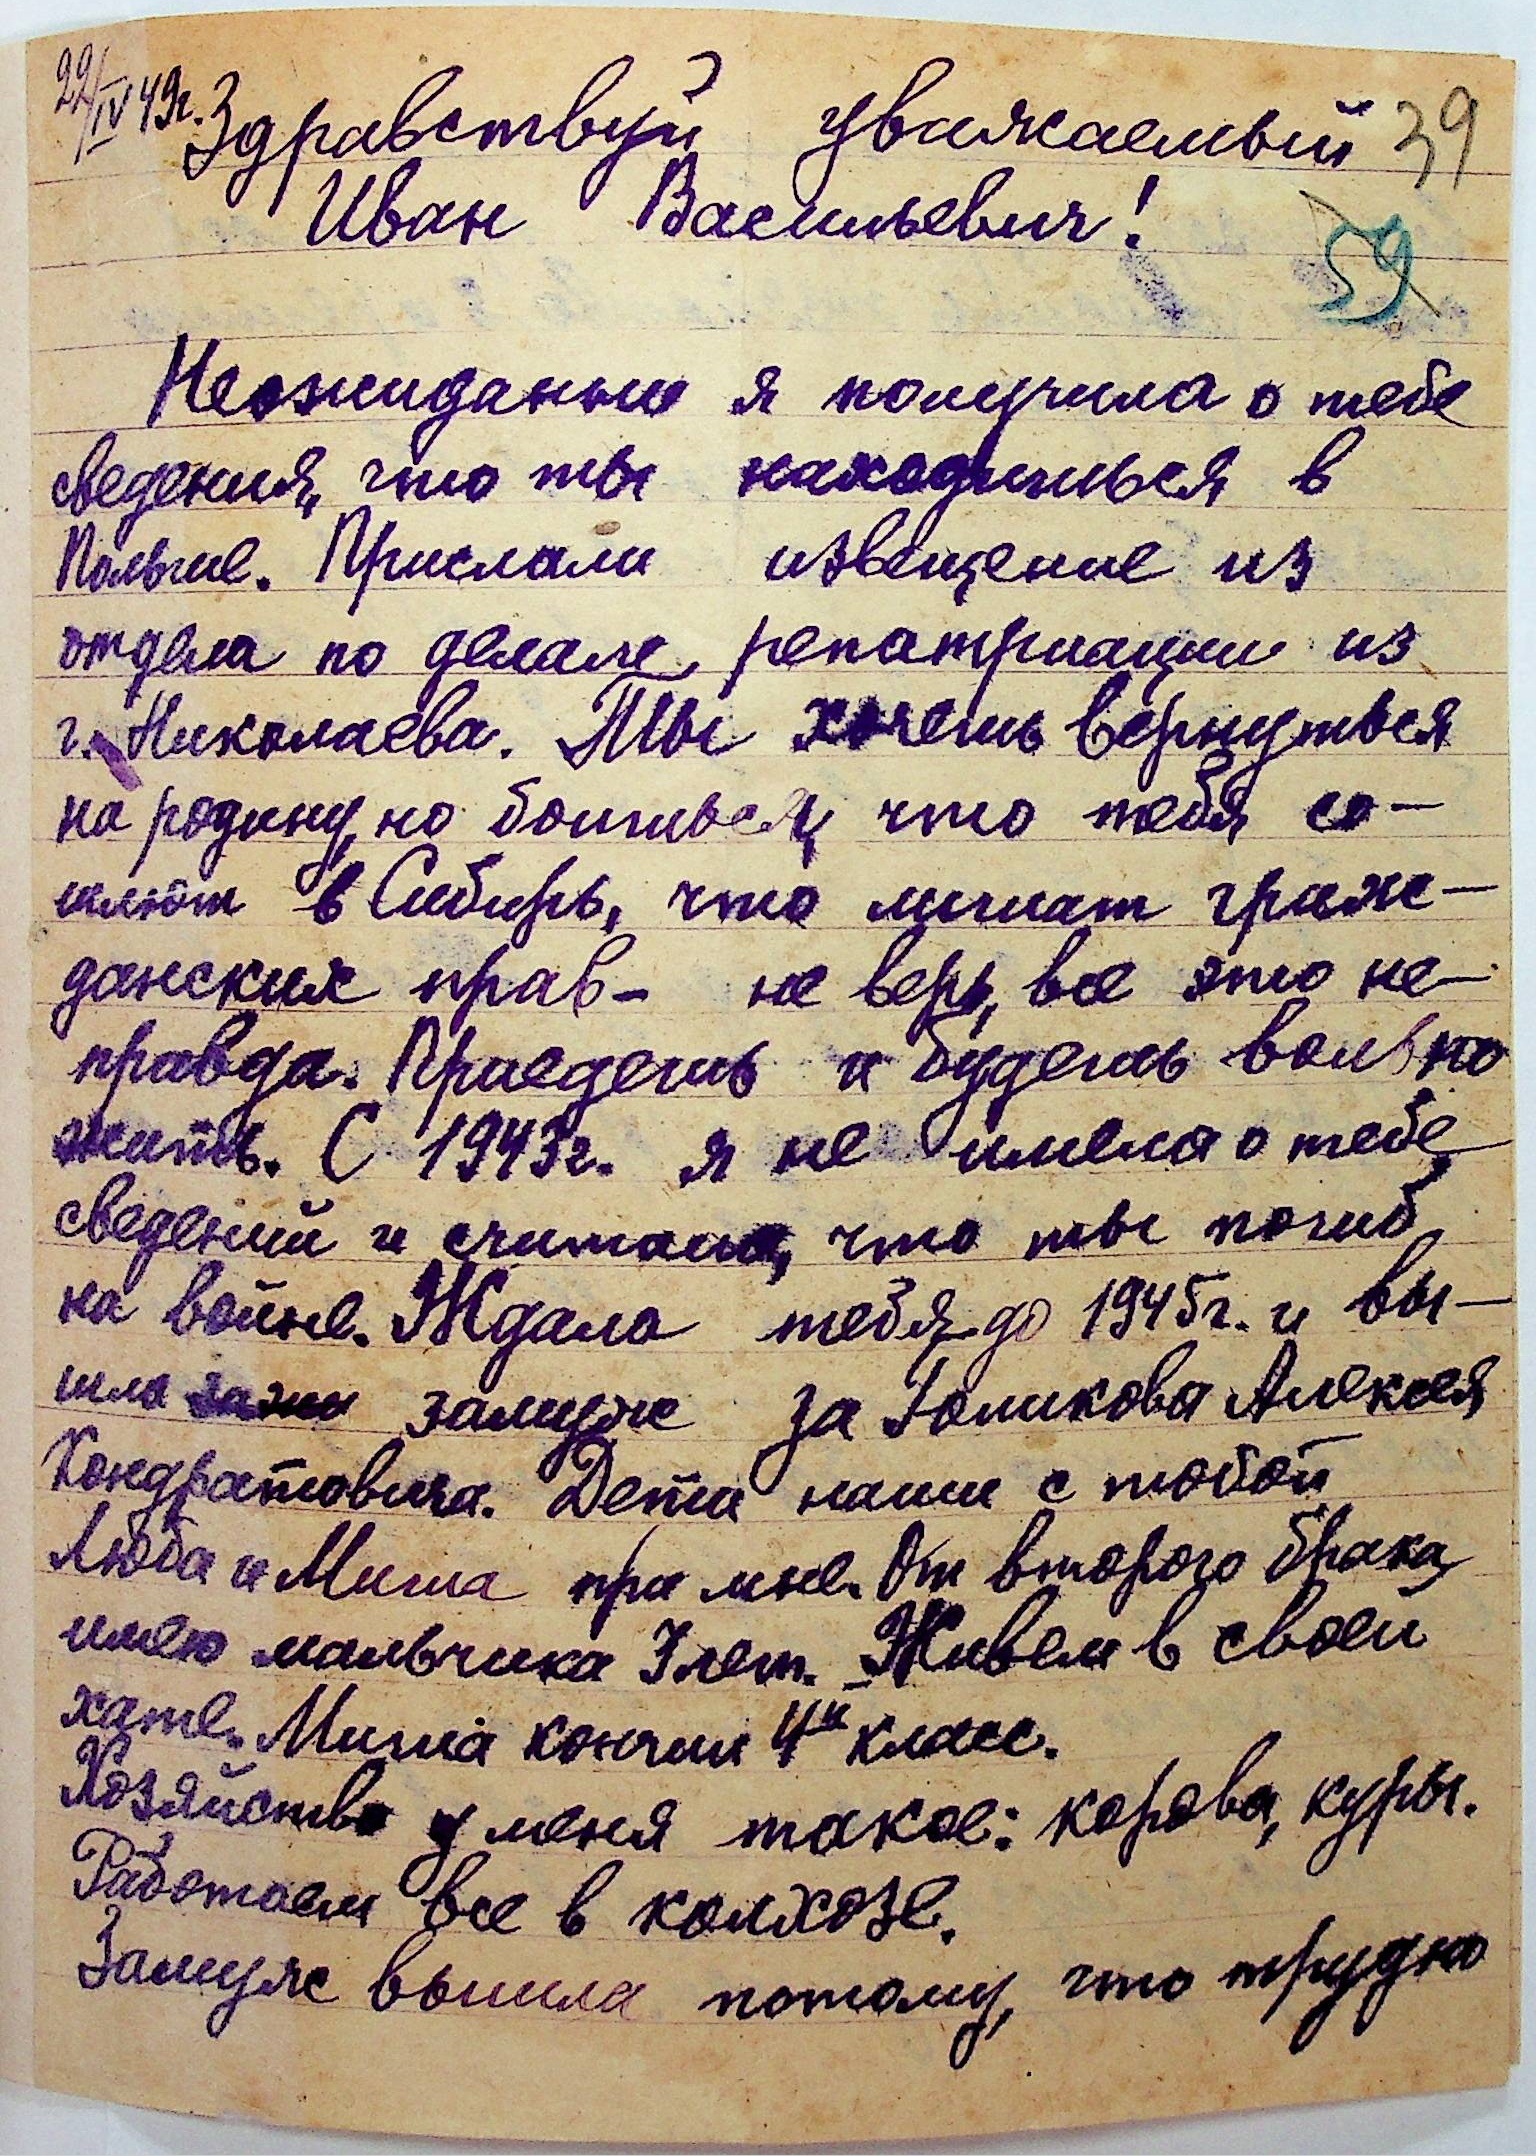 22/IV 49г. Здравствуй уважаемый 39
Иван Васильевич!
59
Неожиданно я получила о тебе
сведения, что ты находишься в
Польше. Прислали извещение из
отдела по делам репатриации из
г. Николаева. Ты хочешь вернуться
на родину, но боишься, что тебя со-
шлют в Сибирь, что лишат граж-
данских прав - не верь, все это не-
правда. Приедешь и будешь вольно
жить. С 1943г. я не имела о тебе
сведений и считала, что ты погиб
на войне. Ждала тебя до 1945г. и вы-
шла замуж за Голикова Алексея
Кондратовича. Дети наши с тобой
Люба и Миша при мне. От второго брака
имею мальчика 3 лет. Живем в своей
хате. Миша кончил 4й класс.
Хозяйство у меня такое: корова, куры.
Работаем все в колхозе.
Замуж вышла потому, что трудно